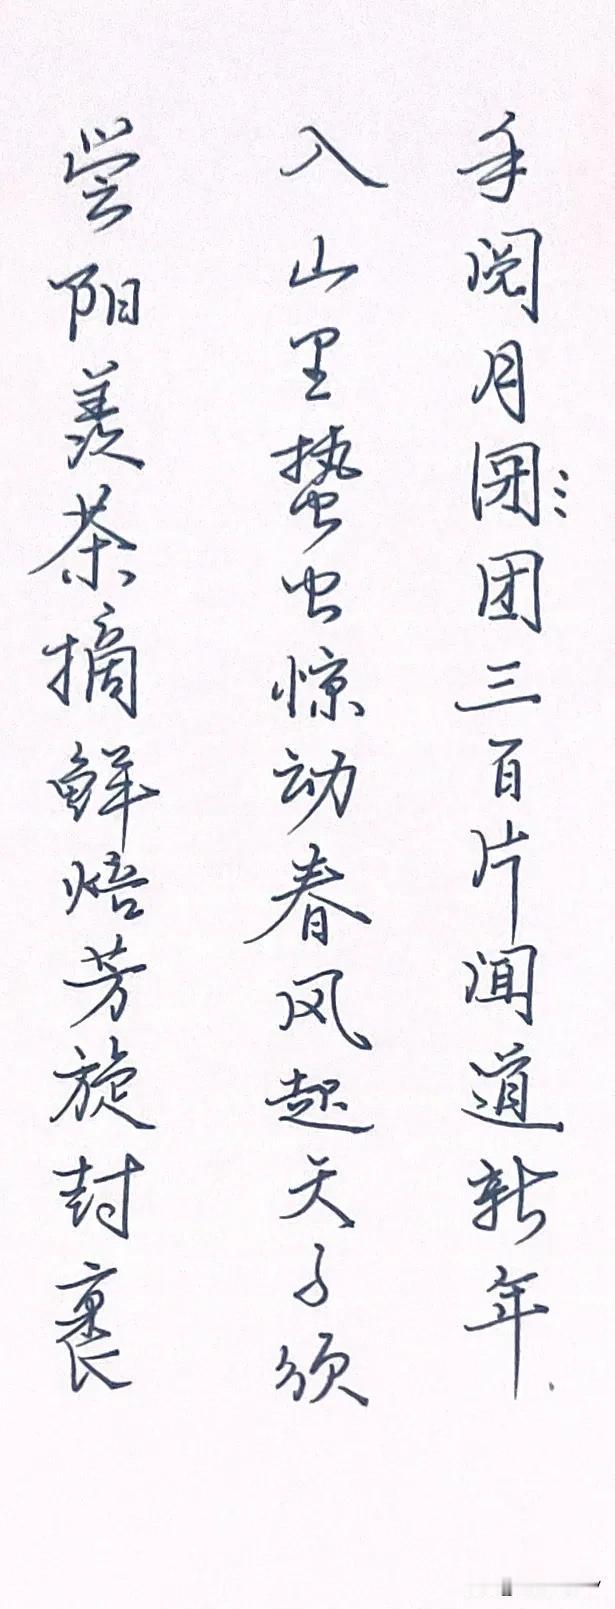 手阅月团三百片闻道新年
入山里蛰虫惊动春风起天子须
尝阳羡茶摘鲜焙芳旋封裹